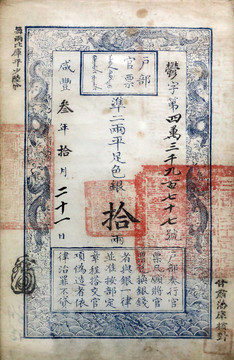 戶部
官票
鬱字第四萬三千九百七十七號
準二兩平足色銀拾兩
咸豐叁年拾月二十一日
戶部奏行官
票凡願將官
票兌換銀錢
者與銀一律
並准按部定
章程搭交官
項偽造者依
律治罪不貸
每兩比庫平少陸分